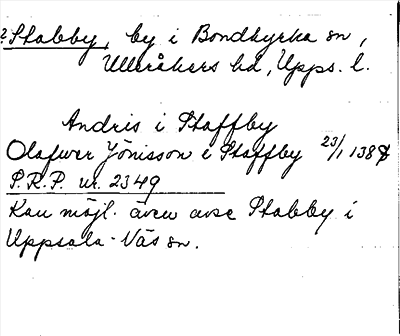 ? Stabby, by i Bondkyrka sn,
Ulleråkers hd, Upps. l.
Andris i Staffby
Olafwer Jönisson i Staffby 23/1 138
S.R.P. nr. 2349
Kan möjl. även avse Stabby i
Uppsala-Näs sn.